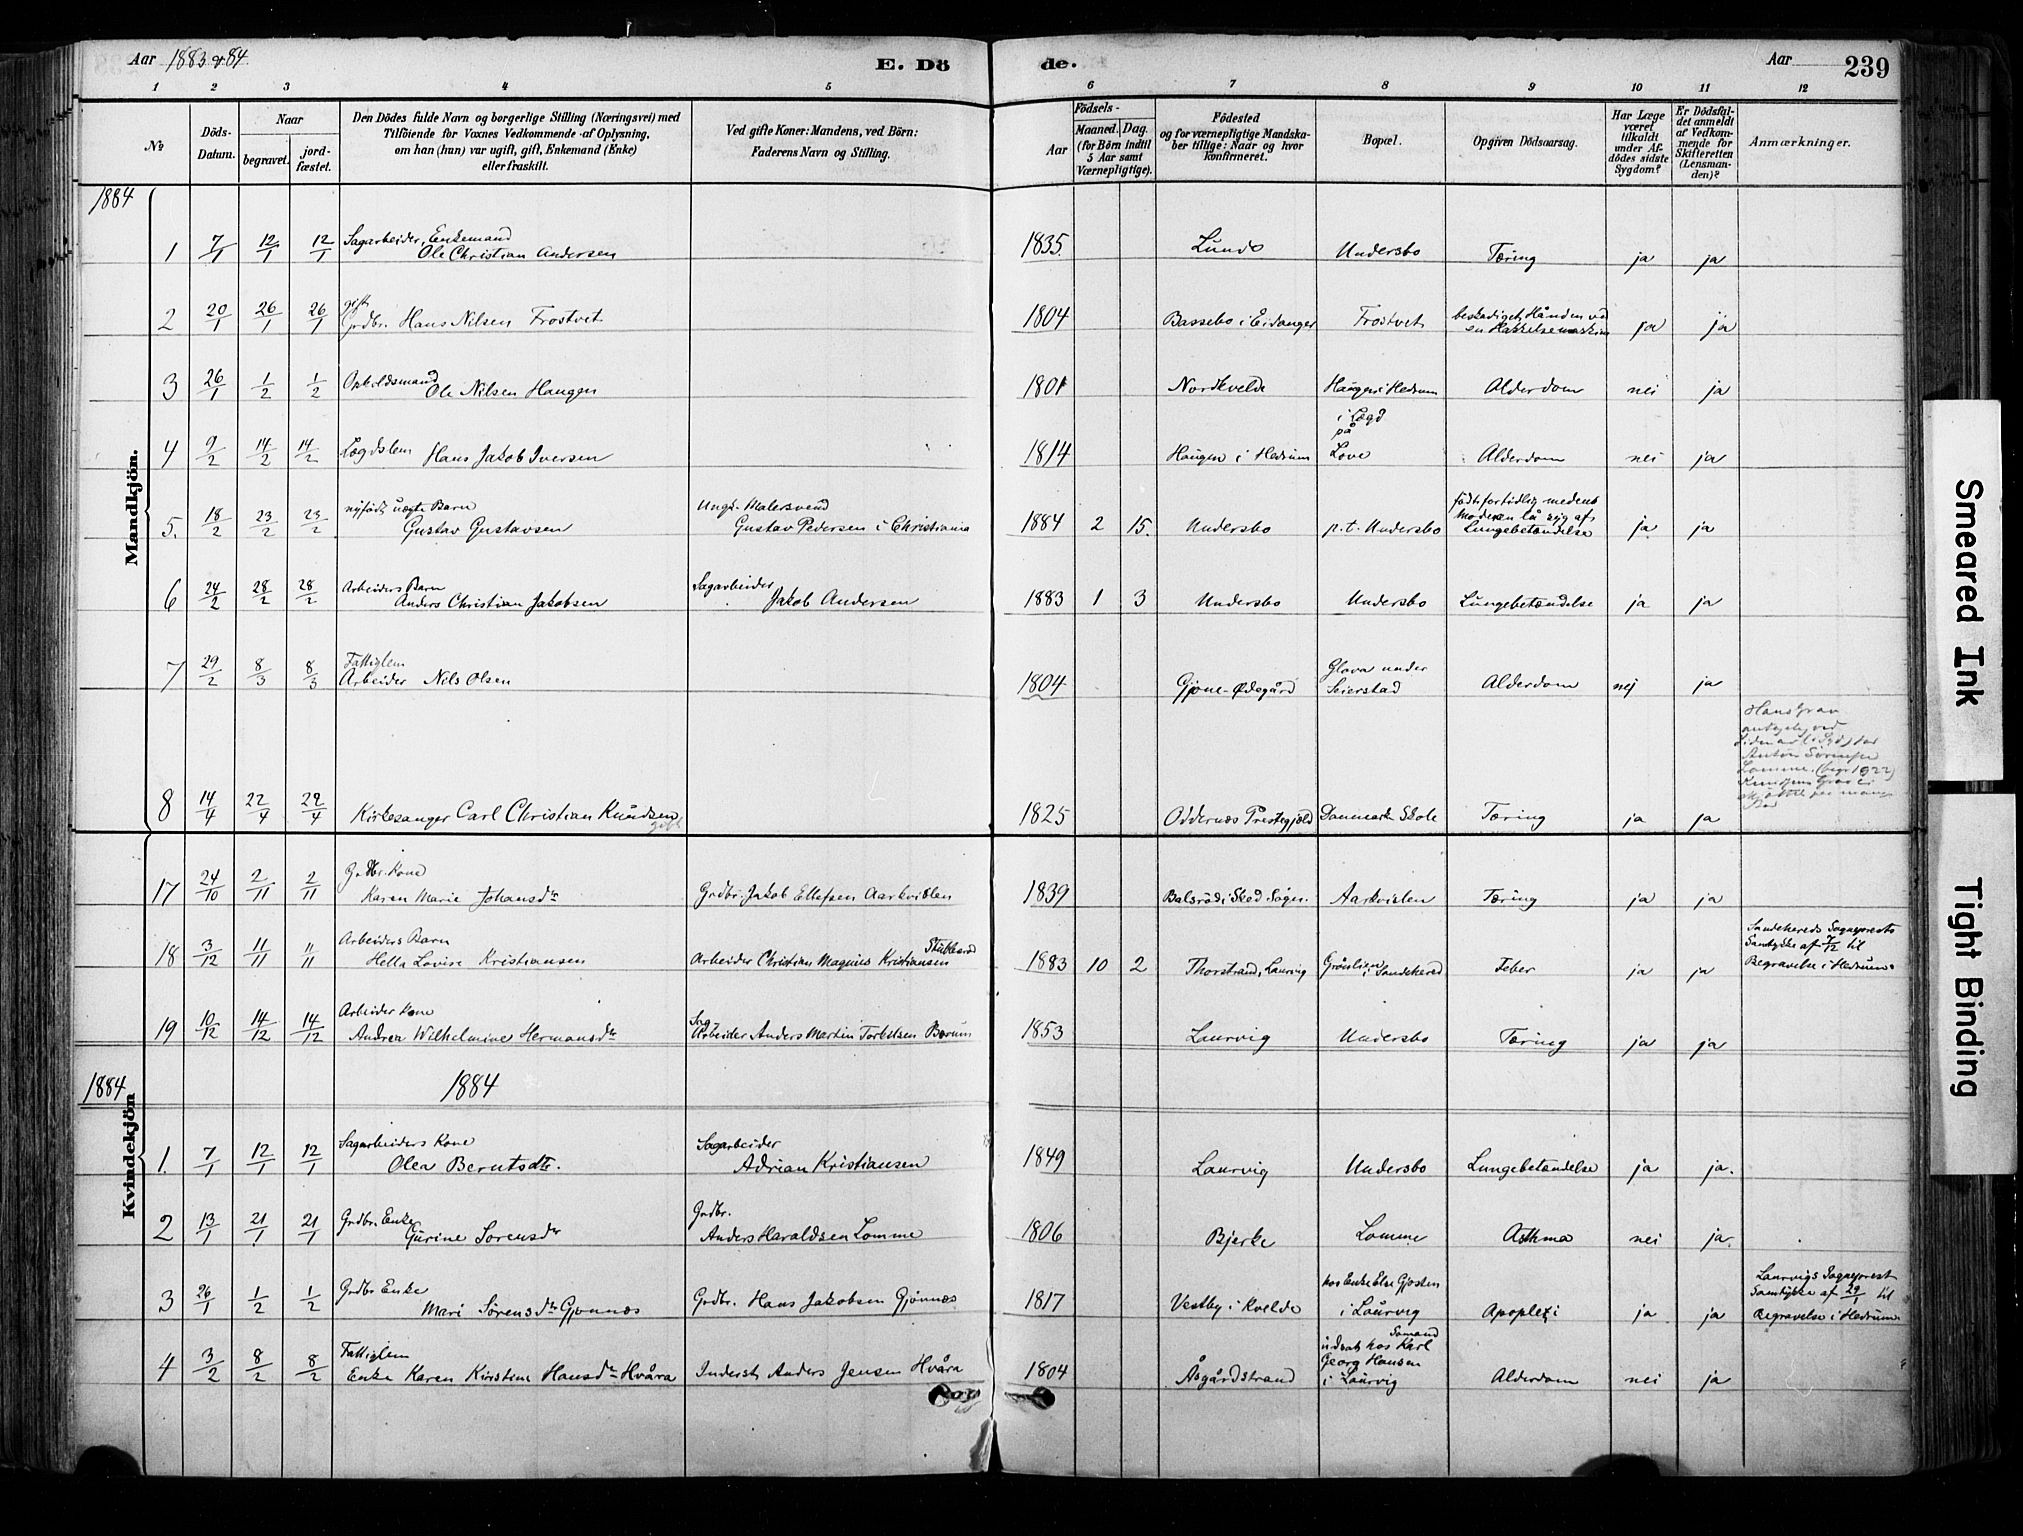 Aar 1883 & 84. E. Dö de. Aar 239
1 2 3 4 5 6 7 8 9 10 11 12
No
Döds-Datum.
Naar
begravet.
jord-fæstet.
Den Dödes fulde Navn og borgerlige Stilling (Næringsvei) med
Tilföiende for Voxnes Vedkommende af Oplysning,
om han (hun) var ugift, gift, Enkemand (Enke)
eller fraskilt.
Ved gifte Koner: Mandens, ved Börn:
Faderens Navn og Stilling.
Födsels-
Aar
Maaned. Dag.
(for Börn indtil
5 Aar samt
Værnepligtige).
Födested
og for værnepligtige Mandska-
ber tillige: Naar og hvor
konfirmeret.
Bopæl.
Opgiven Dödsaarsag.
Har Læge
været
tilkaldt
under Af-
dödes sidste
Sygdom?
Er Dödsfal-
det anmeldt
af Vedkom-
mende for
Skifteretten
(Lensman-
den)?
Anmærkninger.
1884
Mandkjön.
1 7/1 12/1 12/1 Sagarbeider, Enkemand
Ole Christian Andersen 1835. Lunde Undersbo Tæring ja ja
2 20/1 26/1 26/1 gift
Grdbr. Hans Nilsen Frostvet 1804 Bassebo i Eidanger Frostvet beskadiget Hånden ved
en Hakkelsemaskin ja ja
3 26/1 1/2 1/2 Opholdsmand
Ole Nilsen Haugen 1801 Nordkvelde Haugen i Hedrum Alderdom nei ja
4 9/2 14/2 14/2 Lægdslem Hans Jakob Iversen 1814 Haugen i Hedrum i Lægd
på
Love Alderdom nei ja
5. 18/2 23/2 23/2 nyfödt uægte Barn
Gustav Gustavsen Ungk. Malersvend
Gustav Pedersen i Christiania 1884 2 15. Undersbo p.t. Undersbo födt fortidlig medens
Moderen lå syg af
Lungebetændelse ja ja
6 24/2 28/2 28/2 Arbeiders Barn
Anders Christian Jakobsen Sagarbeider
Jakob Andersen 1883 1 3 Undersbo Undersbo Lungebetændelse ja ja
7 29/2 8/3 8/3 Fattiglem
Arbeider Nils Olsen 1804 Gjone-Ødegård Glava under
Seierstad Alderdom nej ja
8 14/4 22/4 22/4 Kirkesanger Carl Christian Knudsen
gift 1825 Oddernæs Prestegjeld Danmark Skole Tæring ja ja
Hans Grav
Lomme. (begr. 1922)
17 24/10 2/11 2/11 Grdbr. Kone
Karen Marie Johansdtr Grdbr. Jakob Ellefsen Aarkvislen 1839 Balsröd i Sked Sogn. Aarkvislen Tæring ja ja
18 3/12 11/11 11/11 Arbeiders Barn
Hella Lovise Kristiansen Arbeider Christian Magnus Kristiansen 1883 10 2 Thorstrand, Laurvig Grönlien i Sandehered Feber ja ja
Sandehereds Sogneprests
Samtykke af 7/12 til
Begravelse i Hedrum.
19 10/12 14/12 14/12 Arbeider Kone
Andrea Wilhelmine Hermansdtr Sag-
Arbeider Anders Martin Torkilsen Bærum 1853 Laurvig Undersbo Tæring ja ja
1884 1884
Kvindekjön
1. 7/1 12/1 12/1 Sagarbeiders Kone
Olea Berntsdtr. Sagarbeider
Adrian Kristiansen 1849 Laurvig Undersbo Lungebetændelse ja ja.
2 13/1 21/1 21/1 Grdbr. Enke
Gurine Sorensdtr Grdbr.
Anders Haraldsen Lomme 1806 Bjerke Lomme Asthma nei ja.
3 26/1 1/2 1/2 Grdbr Enke
Mari Sørensdtr Gjonnæs Grdbr. Hans Jakobsen Gjönnæs 1817 Vestby i Kvelde hos Enke Else Gjosten
i Laurvig Apoplexi ja ja
Laurvigs Sogneprest
Samtykke af 29/1 til
Begravelse i Hedrum
4 3/2 8/2 8/2 Fattiglem
Enke Karen Kirstine Hansdtr Hvåra Inderst Anders Jensen Hvåra 1804 Åsgårdstrand udsat hos Sømand Karl
Georg Hansen
i Laurvig Alderdom nei ja
Smeared Ink
Tight Binding